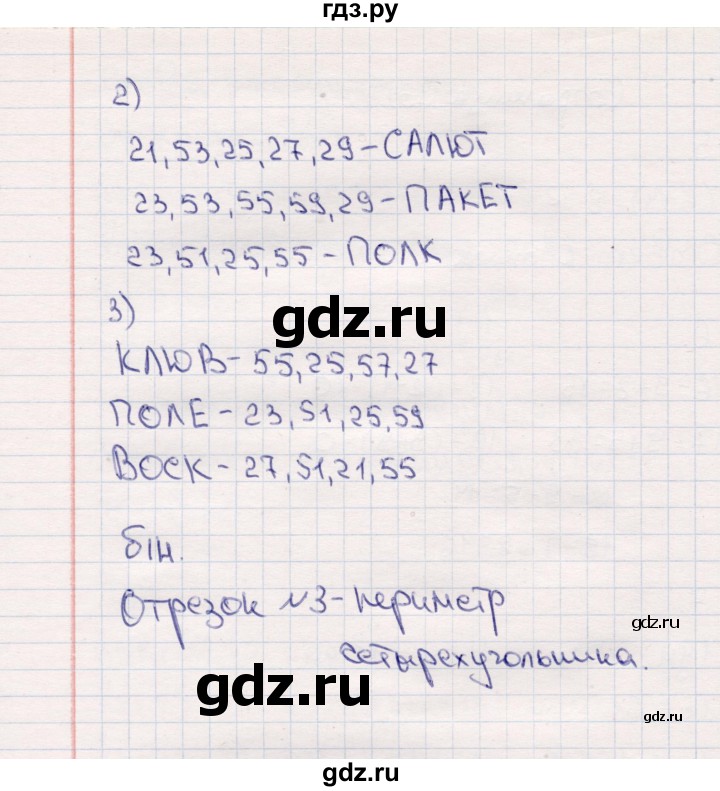 гдз.ру
2)
21, 53, 25, 27, 29 - САЛЮТ
23, 53, 55, 59, 29 - ПАКЕТ
23, 51, 25, 55 - ПОЛК
3)
gdz.ru
КЛЮВ - 55, 25, 57, 27
ПОЛЕ - 23, 51, 25, 59
ВОСК - 27, 51, 21, 55
бін.
Отрезок №3 - периметр
gdz.ru
сетырехугольника.
gdz.ru
gdz.ru
gdz.ru